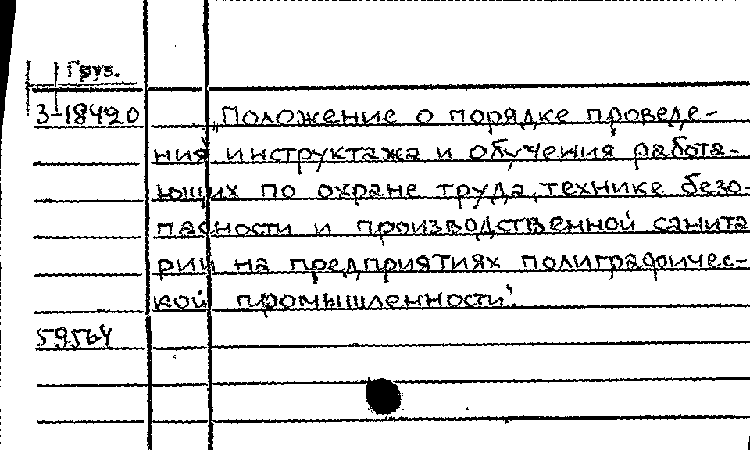 Груз.
3-18420 „Положение о порядке проведе-
ния инструктажа и обучения работа-
ющих по охране труда, технике безо-
пасности и производственной санита
рии на предприятиях полиграфичес-
кой промышленности".
59564